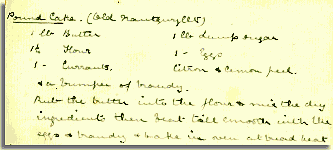 Pound Cake. (Old
1 lb Butter 1 lb lump sugar
Flour 1 - Eggs
1 - Currants, Citron & lemon peel.
& a bumper of brandy.
Rub the butter into the flour & mix the dry
ingredients then beat till smooth with the
eggs & brandy & bake in oven at bread heat